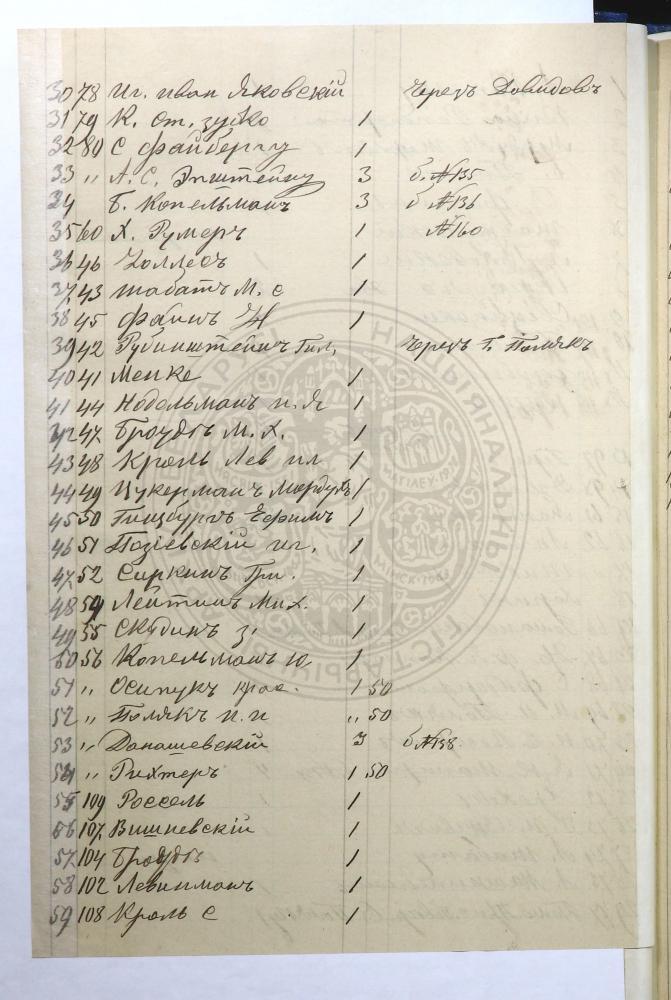 30 78 Иг. иван Яковскій Черезъ Давидовъ
31 79 К. ст. зуско 1
32 80 С файбергу 1
33 „ А. С. Эпштейну 3 б. №135
34 Б. Копельманъ 3 б №136
35 60 Х. Румеръ 1 №160
36 46 1
37 43 шабатъ М. с 1
38 45 файнъ 1
39 42 Рубинштейнъ Гил. Черезъ Г. Полякъ
40 41 Менке 1
41 44 Нодельманъ и. Я 1
42 47 Броудъ М. Х. 1
43 48 Кроль Лев ил 1
44 49 Цукерманъ Мордухъ 1
45 50 Гинзбургъ Ефимъ 1
46 51 Позіевскій иг. 1
47 52 Сиркинъ Гри. 1
48 54 Лейтинъ Мих. 1
49 55 Скудинъ з. 1
50 56 Копельманъ Ю 1
51 „ Осипукъ крас. 1 50
52 „ Полякъ п. и „ 50
53 „ Данашевскій 3 б №138
54 „ Рихтеръ 1 50
55 109 Россель 1
56 107 Вишневскій 1
57 104 Броудъ 1
58 102 Левинманъ 1
59 108 Кроль С 1